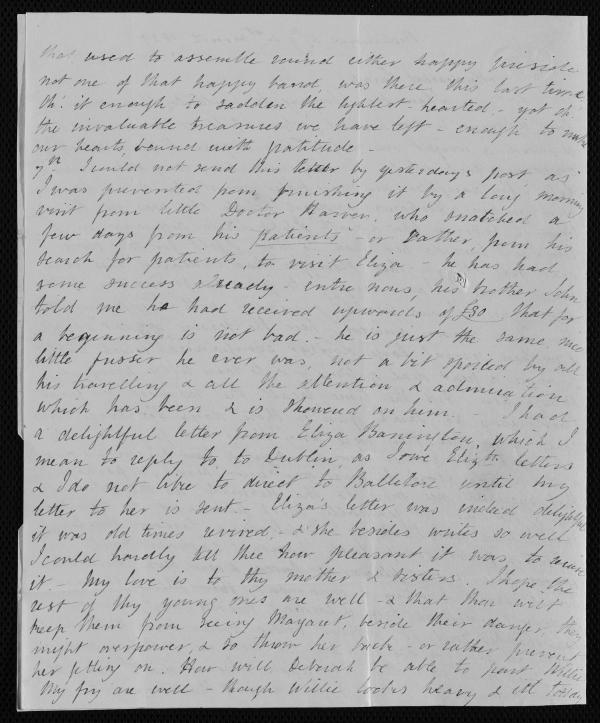 that used to assemble round either happy fireside
not one of that happy band, was there this last time
th' it enough to sadden the lightest-hearted - yet oh!
the invaluable treasures we have left - enough to make
our hearts bound with gratitude -
7th I could not send this letter by yesterday's post as
I was prevented from finishing it by a long morning
visit from little Doctor Harvey, who snatched a
few days from his patients - or rather, from his
search for patients, to visit Eliza - he has had
some success already - entre nous, his brother John
told me he had received upwards of £30 that for
a beginning is not bad. - he is just the same, nice
little fusser he ever was, not a bit spoiled by all
his travelling & all the attention & admiration
which has been & is showered on him. - I had
a delightful letter from Eliza Barrington, which I
mean to reply to, to Dublin, as I owe Elizth letters
& I do not like to direct to Ballitore until my
letter to her is sent - Eliza's letter was indeed delightful
it was old times revived, - & she besides writes so well
I could hardly tell thee how pleasant it was, to receive
it - My love is to thy mother & sisters. I hope the
rest of thy young ones are well - & that thou wilt
keep them from seeing Margaret, beside their danger, they
might overpower, & so throw her back - or rather prevent
her getting on. How will Deborah be able to part Willie
My fry are well - though Willie looks heavy & ill today